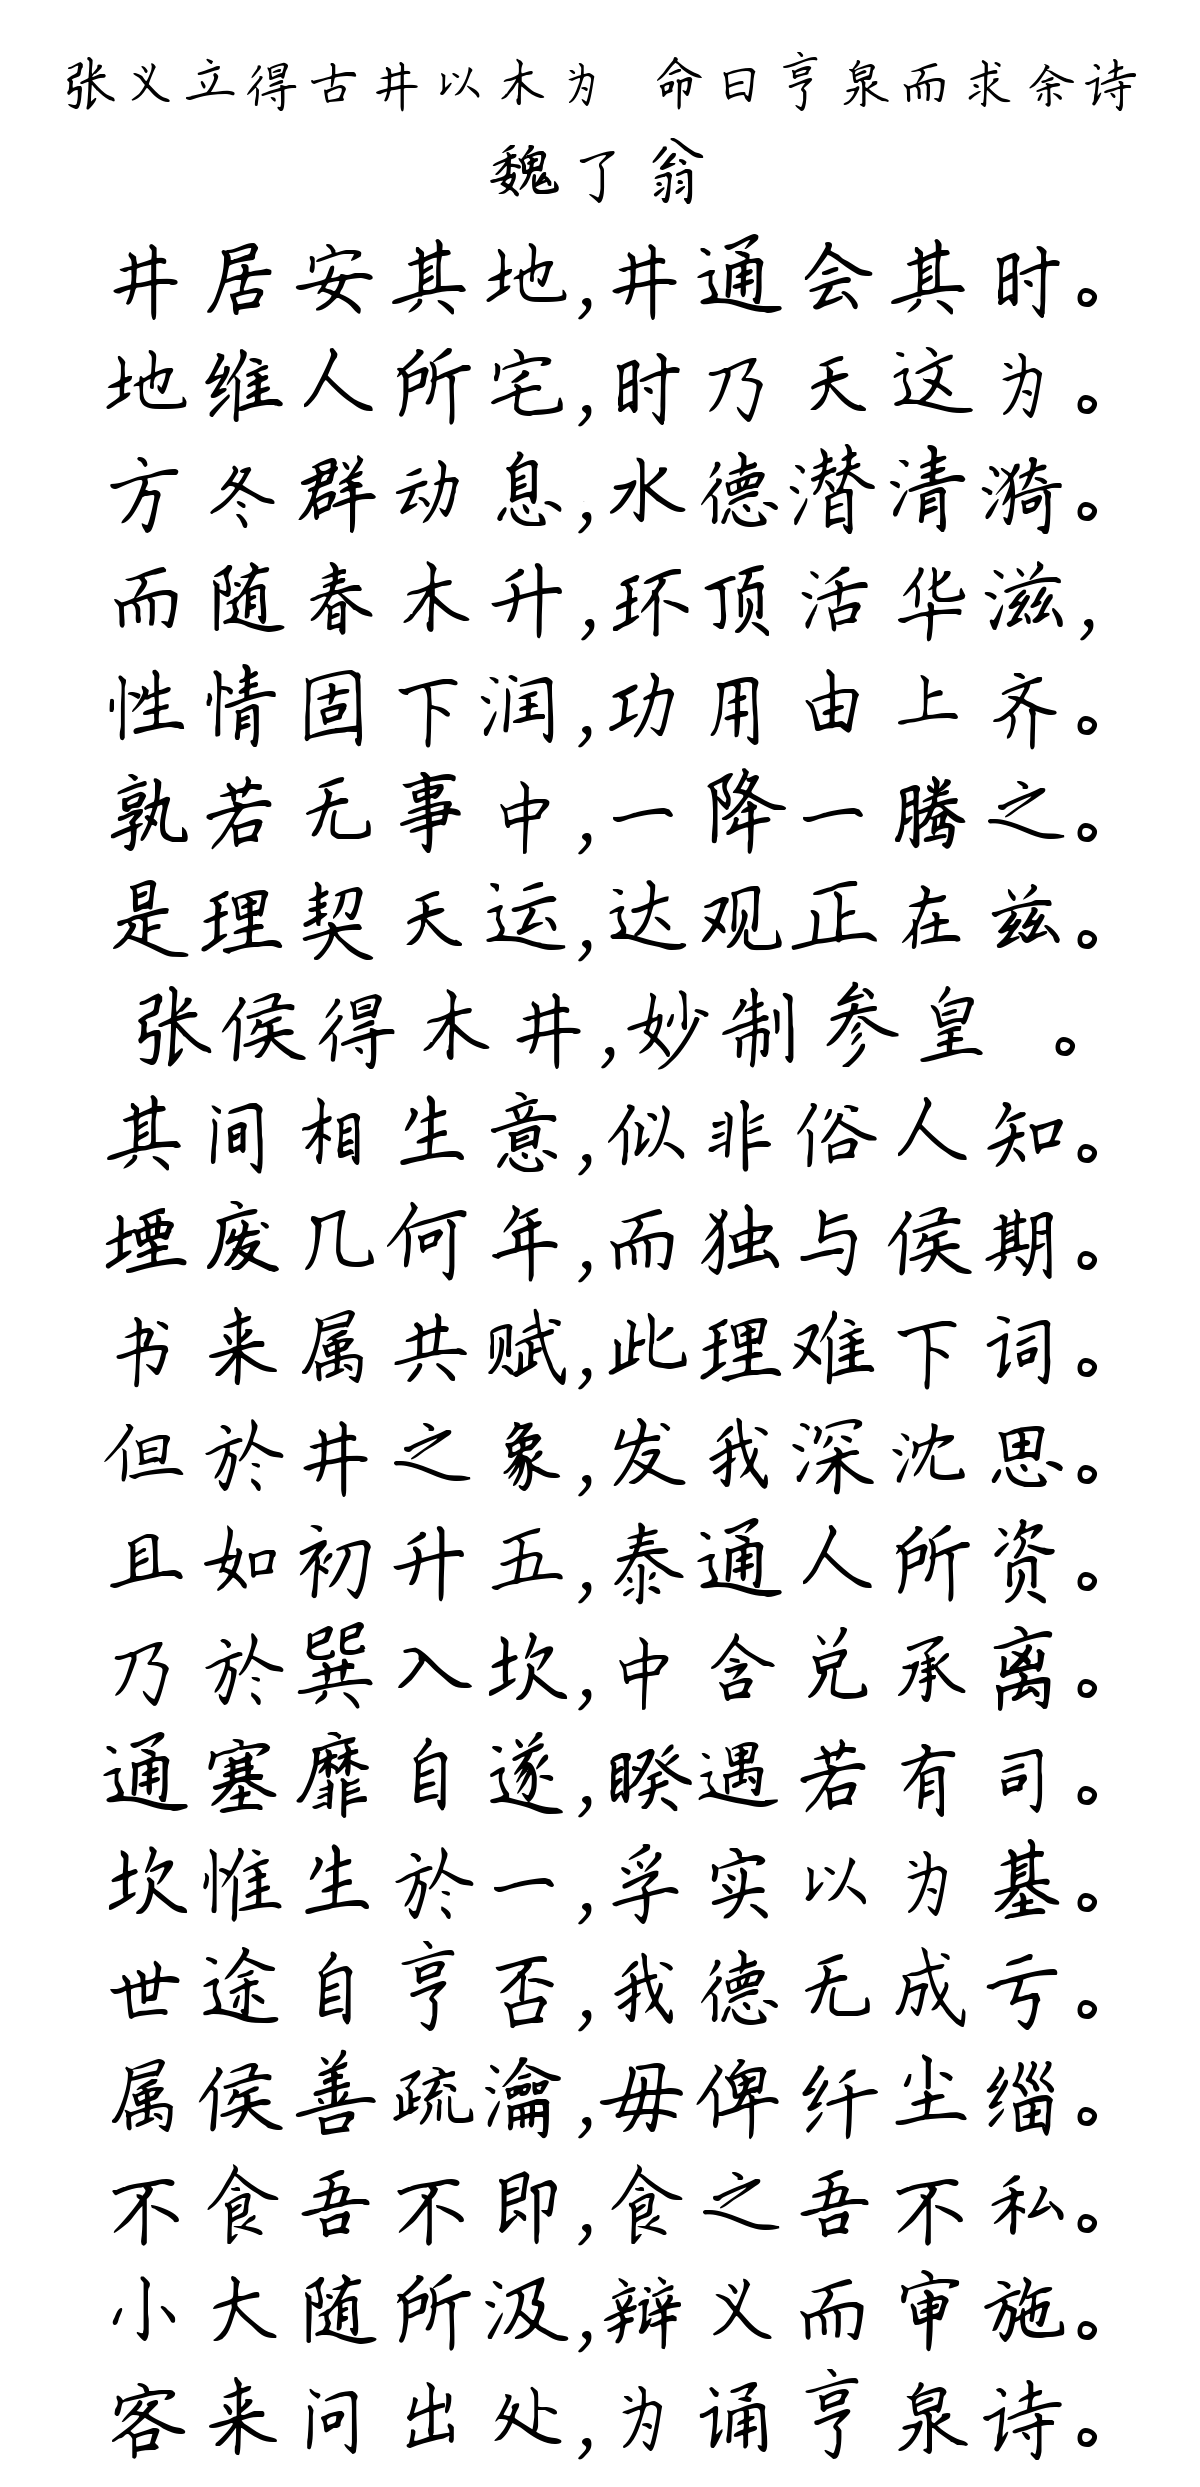 张义立得古井以木为 命曰亨泉而求余诗
魏了翁
井居安其地,井通会其时。
地维人所宅,时乃天这为。
方冬群动息,水德潜清漪。
而随春木升,环顶活华滋,
性情固下润,功用由上齐。
孰若无事中,一降一腾之。
是理契天运,达观正在兹。
张侯得木井,妙制参皇 。
其间相生意,似非俗人知。
堙废几何年,而独与侯期。
书来属共赋,此理难下词。
但於井之象,发我深沈思。
且如初升五,泰通人所资。
乃於巽入坎,中含兑承离。
通塞靡自遂,睽遇若有司。
坎惟生於一,孚实以为基。
世途自亨否,我德无成亏。
属侯善疏瀹,毋俾纤尘缁。
不食吾不即,食之吾不私。
小大随所汲,辩义而审施。
客来问出处,为诵亨泉诗。